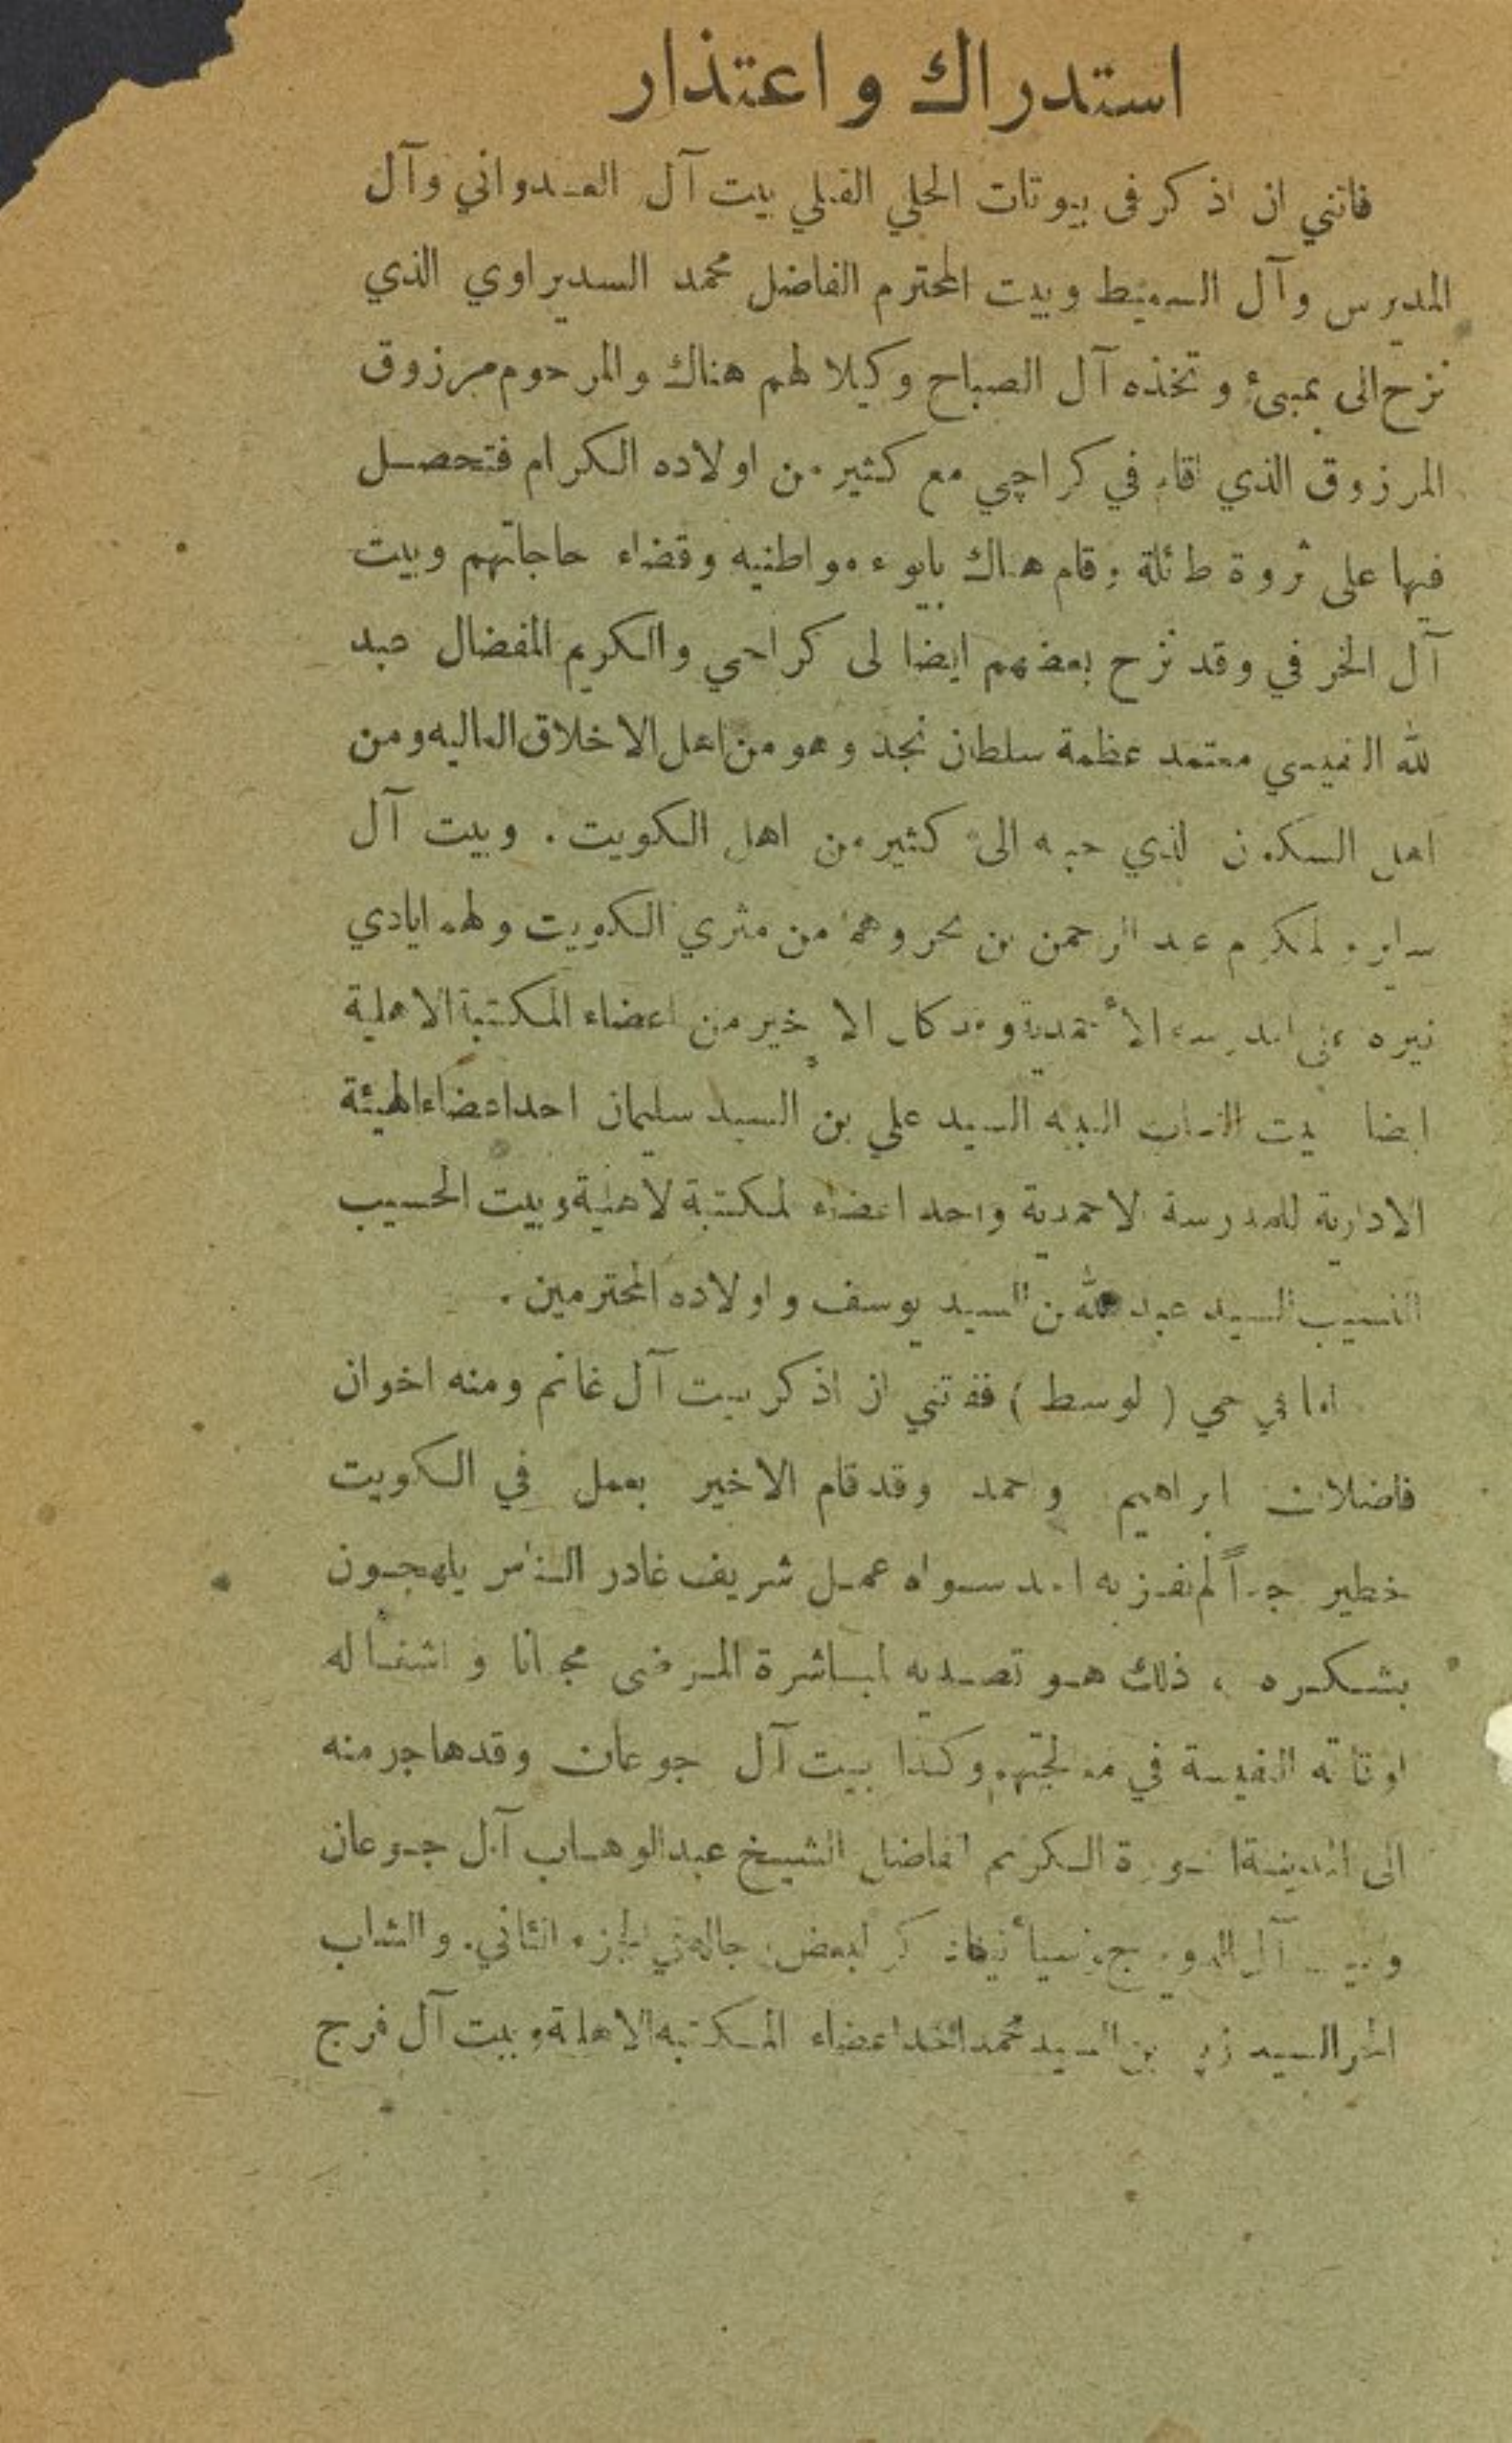 استدراك واعتذار
فاتني ان اذكر فى بيوتات الحلي القبلي بيت آل العدواني وآل
المديرس وآل السميط وبيت المحترم الفاضل محمد السديراوي الذي
نزح الى بمبئ وتخذه آل الصباح وكيلا لهم هناك والمرحوم مرزوق
المرزوق الذي اقام في كراچي مع كثير من اولاده الكرام فتحصل
فيها على ثروة طائلة وقام هناك بايوء مواطنيه وقضاء حاجاتهم وبيت
آل الخرفي وقد نزح بعضهم ايضا لى كراحي والكريم المفضال عبد
لله النفيسي معتمد عظمة سلطان نجد وهو من اهل الاخلاق العاليه ومن
اهل السكون لذي حببه الى كثير من اهل الكويت . وبيت آل
لمكرم عبد الرحمن بن بحر وهما من مثري الكويت ولهم ايادي
نيره الأحمدية وقد كان الاخير من اعضاء المكتبة الاهلية
ايضا بيت الشاب النبيه السيد علي بن السيد سليمان احد اعضاء الهيئة
الادارية للمدرسة لاحمدية واحد اعضاء لمكتبة لاهلية وبيت الحسيب
النسيب السيد عبد الله بن السيد يوسف واولاده المحترمين .
اما في حي ( لوسط ) ففتني ان اذكر بيت آل غانم ومنه اخوان
فاضلان ابراهيم واحمد وقد قام الاخير بعمل في الكويت
خطير جداً لم يفز به احد سواه عمل شريف غادر الناس يلهجون
بشكره ، ذلك هو تصديه لمباشرة المرضى مجانا واشغاله
اوقاته النفيسة في معالجتهم وكذا بيت آل جوعان وقد هاجر منه
الى المدينة الكريم الفاضل الشيخ عبد الوهاب آل جوعان
وبيت آل لبعض الجزء الثاني . والشاب
السيد بن السيد محمد احد اعضاء المكتبه الاهلية وبيت آل فرج